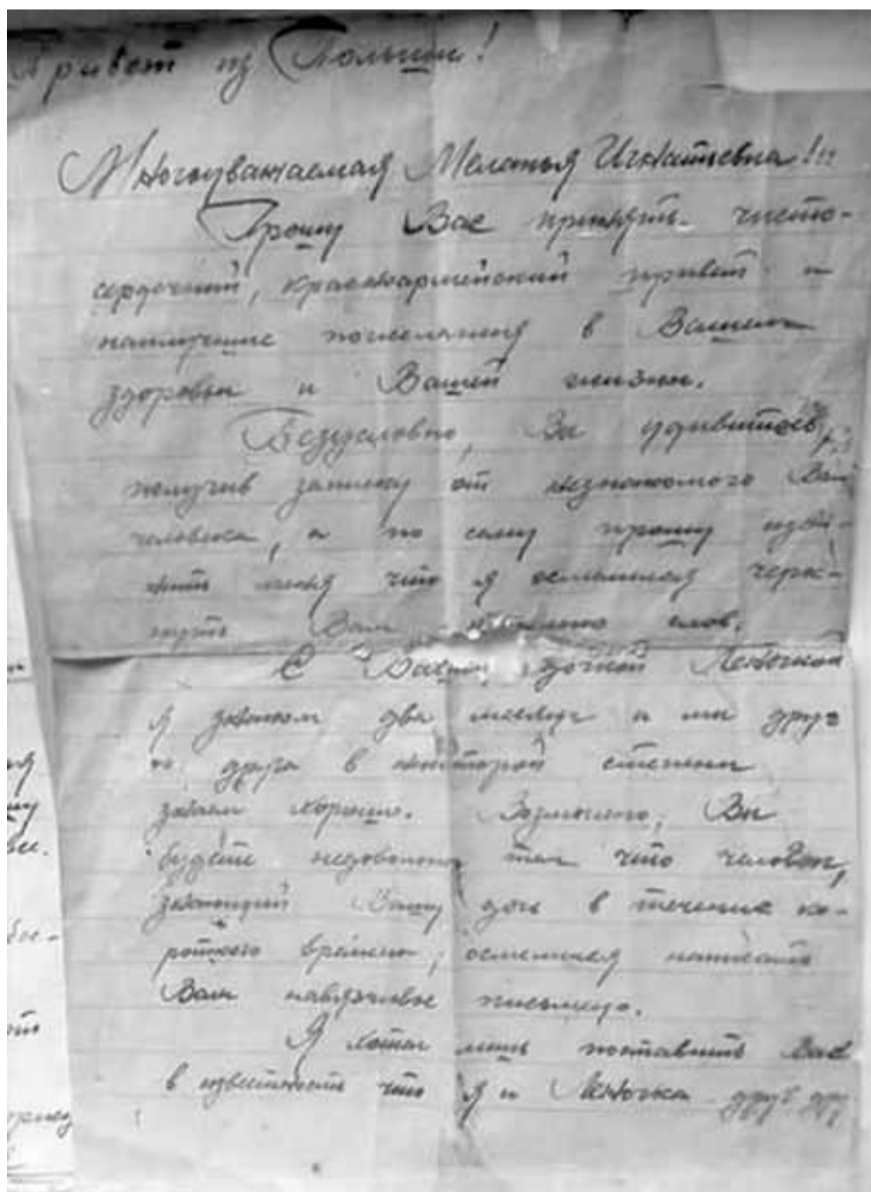 Привет из Польши!
Многоуважаемая Меланья Игнатьевна!!!
Прошу Вас принять чисто-
сердечный, красноармейский привет и
наилучшие пожелания в Вашем
здоровьи и Вашей жизни.
Безусловно, Вы удивитесь,
получив записку от незнакомого Вам
человека, а по сему прошу изви-
нить меня что я осмелился черк-
нуть Вам несколько слов.
С Вашей дочкой Леночкой
я знаком два месяца и мы друг
друга в некоторой степени
знаем хорошо. Возможно, Вы
будете недовольны тем что человек,
знающий Вашу дочь в течение ко-
роткого времени, осмелился написать
Вам письмецо.
Я хотел лишь поставить Вас
в известность что я и Леночка друг дру